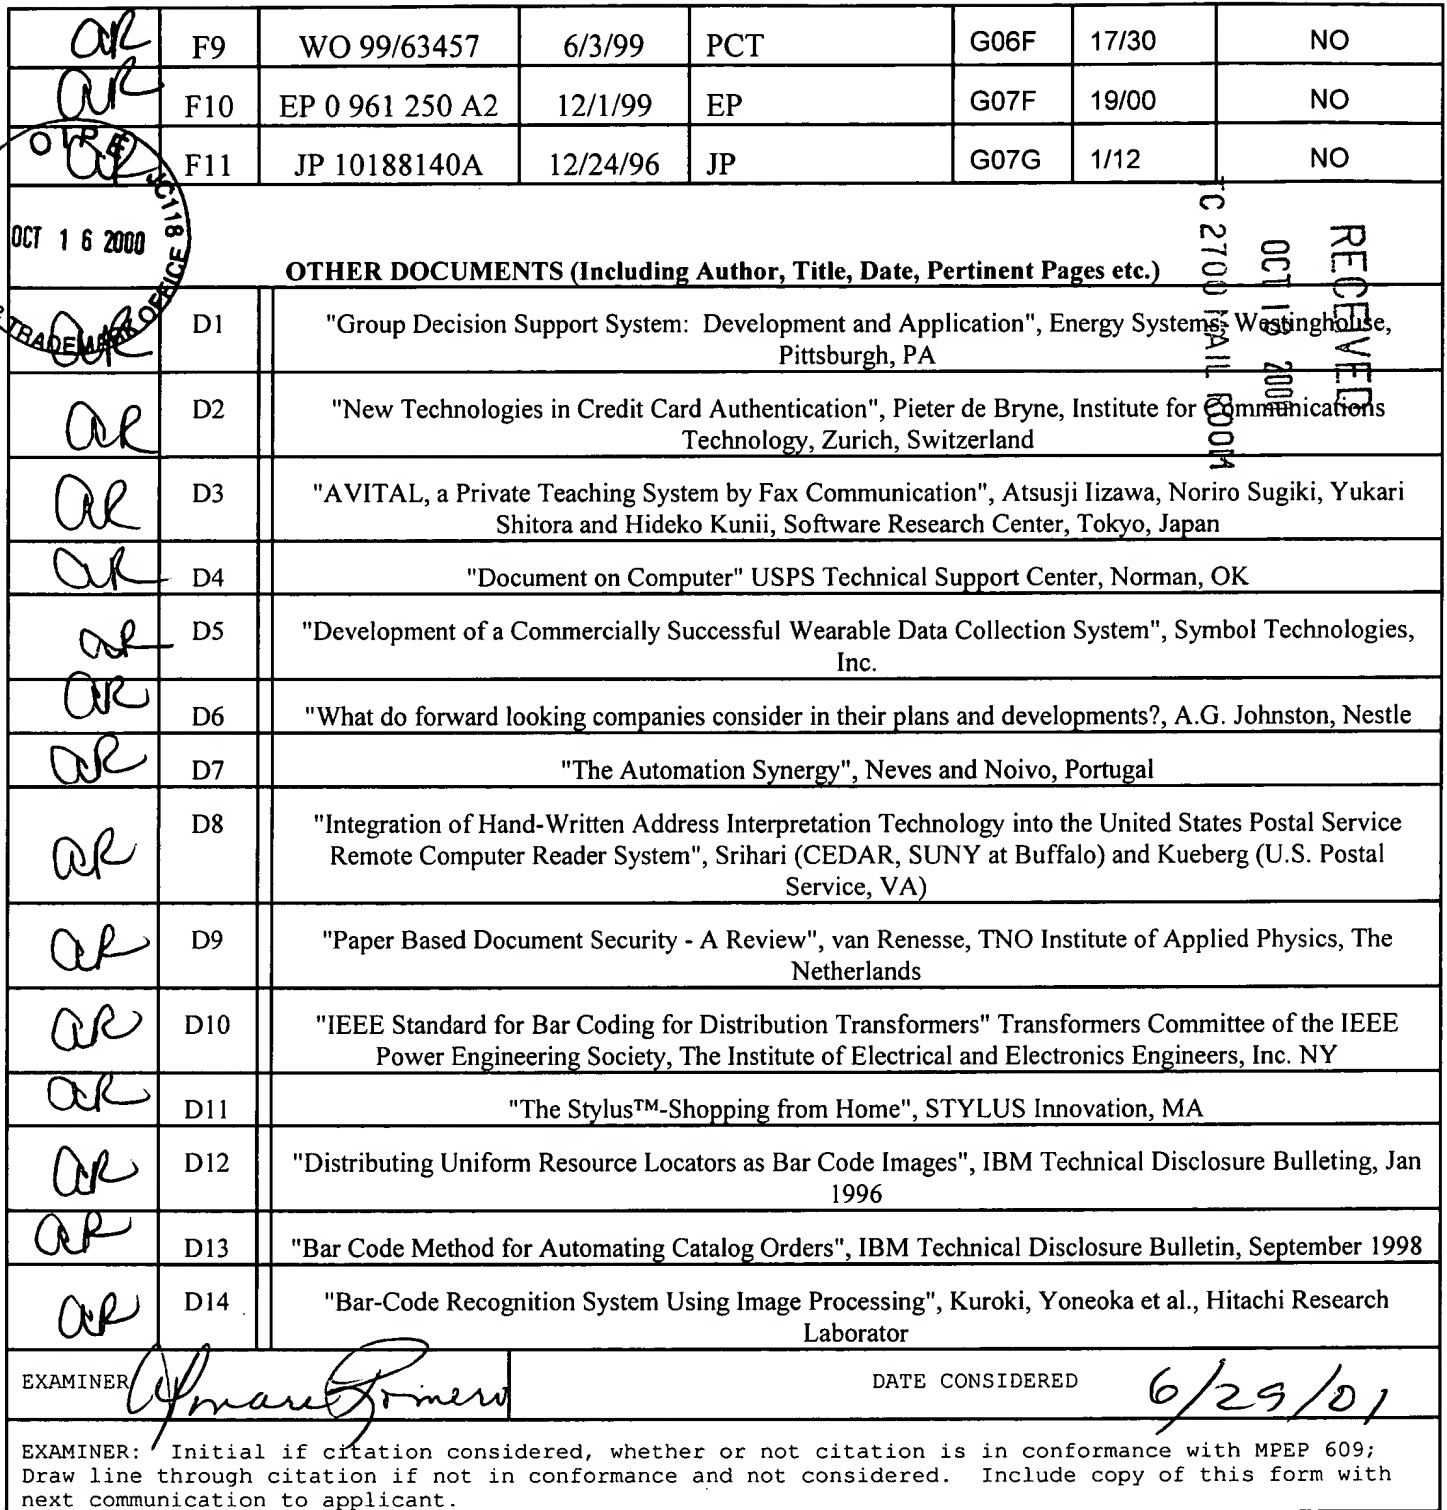 AR F9 WO 99/63457 6/3/99 PCT G06F 17/30 NO
AR F10 EP 0 961 250 A2 12/1/99 EP G07F 19/00 NO
AR F11 JP 10188140A 12/24/96 JP G07G 1/12 NO
OIPE JC118
OCT 16 2000
TRADEMARK OFFICE
RECEIVED
OCT 18 2000
TC 2700 MAIL ROOM
OTHER DOCUMENTS (Including Author, Title, Date, Pertinent Pages etc.)
AR D1 "Group Decision Support System: Development and Application", Energy Systems, Westinghouse,
Pittsburgh, PA
AR D2 "New Technologies in Credit Card Authentication", Pieter de Bryne, Institute for Communications
Technology, Zurich, Switzerland
AR D3 "AVITAL, a Private Teaching System by Fax Communication", Atsusji Iizawa, Noriro Sugiki, Yukari
Shitora and Hideko Kunii, Software Research Center, Tokyo, Japan
AR D4 "Document on Computer" USPS Technical Support Center, Norman, OK
AR D5 "Development of a Commercially Successful Wearable Data Collection System", Symbol Technologies,
Inc.
AR D6 "What do forward looking companies consider in their plans and developments?, A.G. Johnston, Nestle
AR D7 "The Automation Synergy", Neves and Noivo, Portugal
AR D8 "Integration of Hand-Written Address Interpretation Technology into the United States Postal Service
Remote Computer Reader System", Srihari (CEDAR, SUNY at Buffalo) and Kueberg (U.S. Postal
Service, VA)
AR D9 "Paper Based Document Security - A Review", van Renesse, TNO Institute of Applied Physics, The
Netherlands
AR D10 "IEEE Standard for Bar Coding for Distribution Transformers" Transformers Committee of the IEEE
Power Engineering Society, The Institute of Electrical and Electronics Engineers, Inc. NY
AR D11 "The Stylus™-Shopping from Home", STYLUS Innovation, MA
AR D12 "Distributing Uniform Resource Locators as Bar Code Images", IBM Technical Disclosure Bulleting, Jan
1996
AR D13 "Bar Code Method for Automating Catalog Orders", IBM Technical Disclosure Bulletin, September 1998
AR D14 "Bar-Code Recognition System Using Image Processing", Kuroki, Yoneoka et al., Hitachi Research
Laborator
EXAMINER Romero DATE CONSIDERED 6/29/01
EXAMINER: Initial if citation considered, whether or not citation is in conformance with MPEP 609;
Draw line through citation if not in conformance and not considered. Include copy of this form with
next communication to applicant.